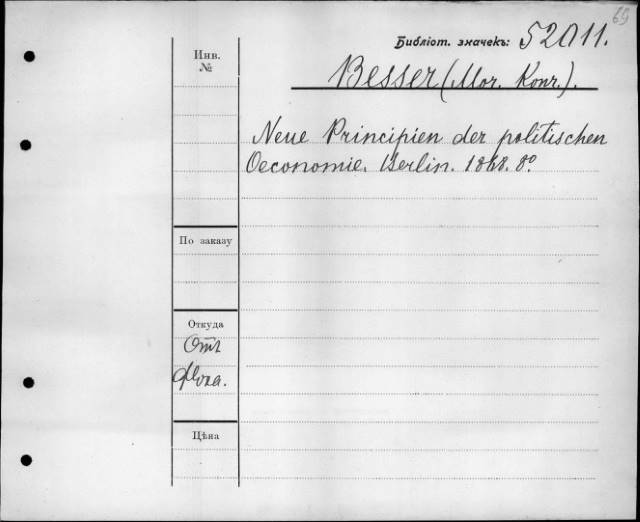 69
Библіот. значекъ: 52011.
Инв.
№
Besser (Mor. Konr.).
Neue Principien der politischen
Oeconomie. Berlin. 1868. 8º.
По заказу
Откуда
Отъ
Цѣна